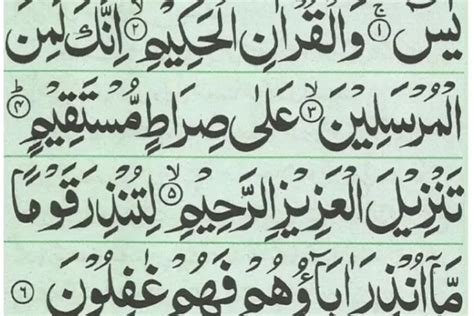 يٰسٓ ۚ ﴿١﴾ وَالْقُرْاٰنِ الْحَكِيْمِ ۙ ﴿٢﴾ اِنَّكَ لَمِنَ
الْمُرْسَلِيْنَ ۙ ﴿٣﴾ عَلٰى صِرَاطٍ مُّسْتَقِيْمٍ ؕ ﴿۴﴾
تَنْزِيْلَ الْعَزِيْزِ الرَّحِيْمِ ۙ ﴿۵﴾ لِتُنْذِرَ قَوْمًا
مَّاۤ اُنْذِرَ اٰبَآؤُهُمْ فَهُمْ غٰفِلُوْنَ ﴿٦﴾